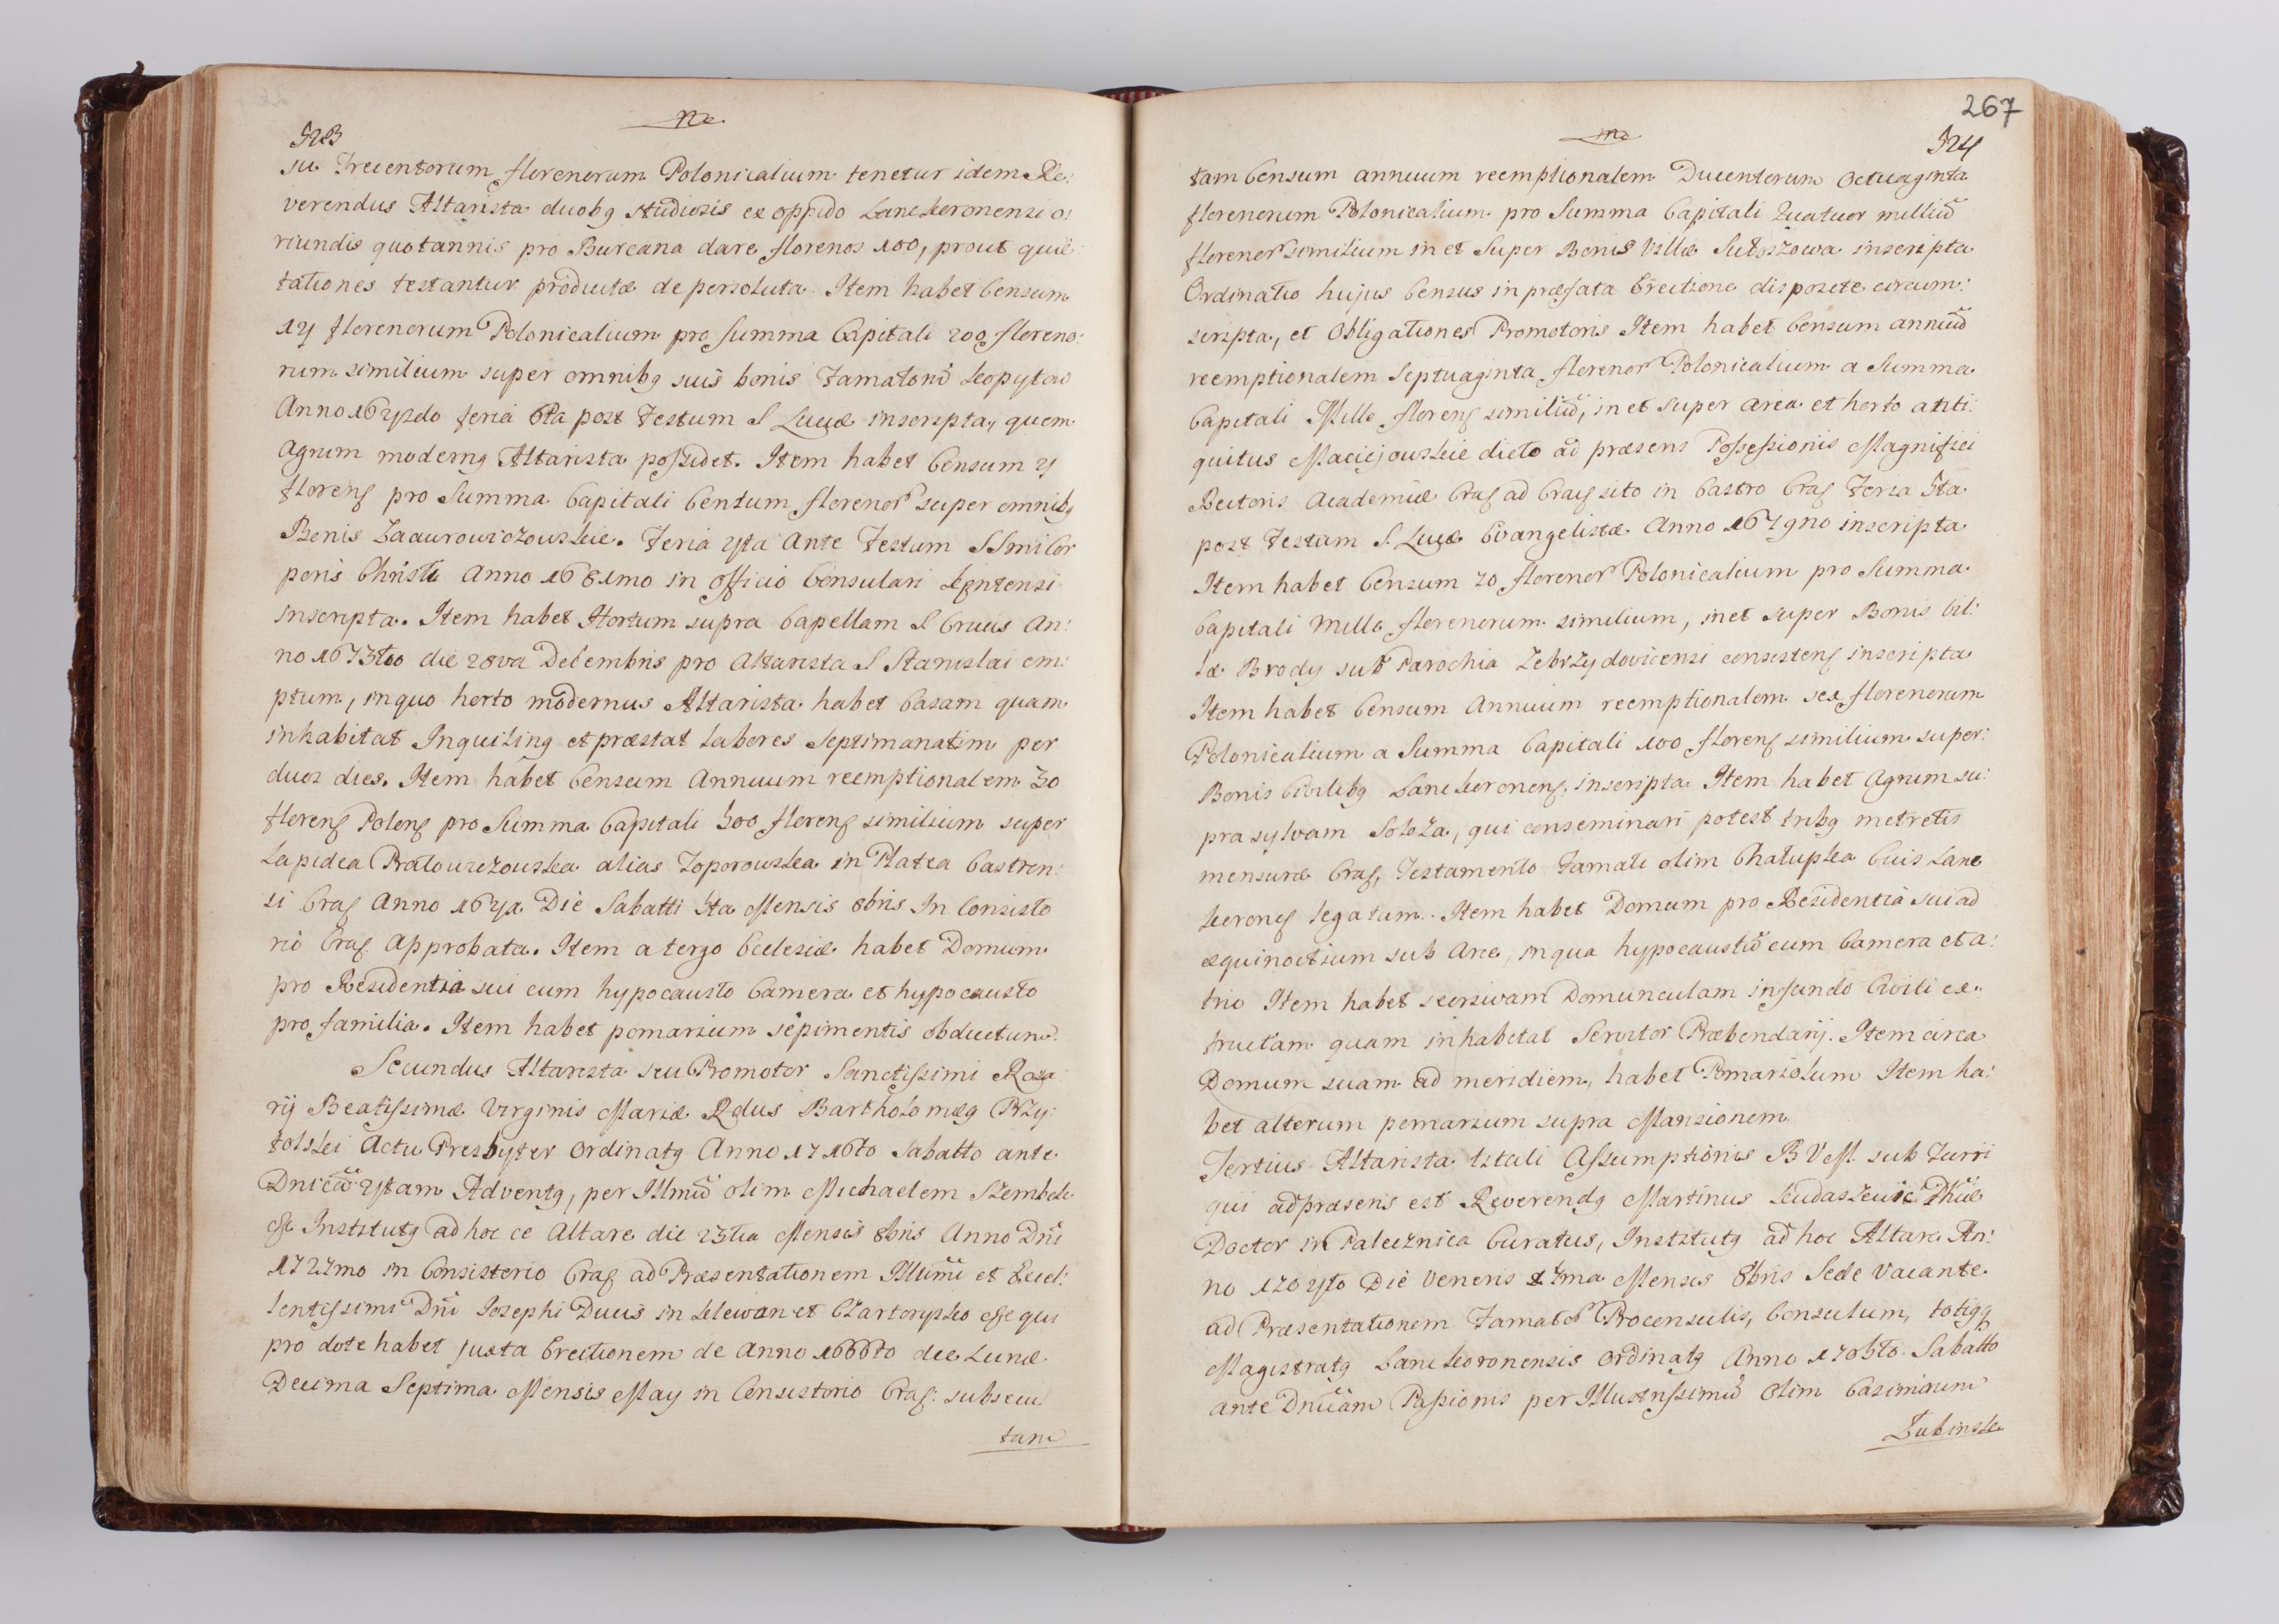 523
su Trecentorum florenorum Polonicalium tenetur idem Re:
verendus Altarista duobq studiosis ex oppido Lanckoronensi o:
riundis quotannis pro Burcana dare florenos 100, prout quie:
tationes testantur productæ de persoluta. Item habet Censum
14 florenorum Polonicalium pro Summa Capitali 200 floreno:
rum similium super omnibq suis bonis Famatoru
Anno feria post Festum S Lucæ inscripta, quem
Agrum modernq Altarista possidet. Item habet Censum 4
floren pro Summa Capitali Centum florenor super omnibq
Bonis Feria 4ta Ante Festum SSmi Cor
poris Christi Anno 1681mo in Officio Consulari
inscripta. Item habet Hortum supra Capellam S Crucis An:
no 1673tio die 28va Decembris pro Altarista S Stanislai em:
ptum, in quo horto modernus Altarista habet Casam quam
inhabitat Inquilinq et præstat labores septimanatim per
duos dies. Item habet Censum Annuum reemptionalem 30
floren Polon pro Summa Capitali 500 floren similium super
Lapidea alias Toporowska in Platea Castren:
si Crac Anno Die Sabatti 5ta Mensis 8bris In Consisto
rio Crac Approbata. Item a tergo Ecclesiæ habet Domum
pro Residentia sui cum hypocausto Camera et hypocausto
pro familia. Item habet pomarium sepimentis obductum.
Secundus Altarista seu Promotor Sanctissimi Rosa:
rij Beatissimæ Virginis Mariæ Rdus Bartholomæq Przy:
tolski Actu Presbyter Ordinatq Anno 1716to Sabatto ante
Dnicã 4tam Adventq, per Illmũ olim Michaelem Szembek
Institutq ad hoc ce Altare die 23tia Mensis 8bris Anno Dni
1727mo in Consistorio Crac ad Præsentationem Illumi et Excel:
lentissimi Dni Josephi Ducis in Klewan et Czartorysko qui
pro dote habet juxta Erectionem de Anno 1666to die Lunæ
Decima Septima Mensis May in Consistorio Crac: subsecu:
tam
267
524
tam Censum annuum reemptionalem Ducentorum Octuaginta
florenorum Polonicalium pro Summa Capitali Quatuor milliũ
florenor similium in et Super Bonis Villæ Sułoszowa inscripta
Ordinatio hujus Census in præfata Erectione disposite circum:
scripta, et Obligationes Promotoris Item habet Censum annuũ
reemptionalem Septuaginta florenor Polonicalium a Summa
Capitali Mille floren similiũ, in et super area et horto anti:
quitus Maciejouskie dicto ad præsens Possessionis Magnifici
Rectoris Academiæ Crac ad Crac sito in Castro Crac Feria 5ta
post Festum S. Lucæ Evangelistæ Anno 1679no inscripta
Item habet Censum 70 florenor Polonicalium pro Summa
Capitali Mille florenorum similium, in et super Bonis Vil:
læ Brody sub Parochia Zebrzydovicensi consisten inscripta
Item habet Censum Annuum reemptionalem sex florenorum
Polonicalium a Summa Capitali 100 floren similium super
Bonis Civilibq Lanckoronen: inscripta Item habet Agrum su:
pra sylvam Soloza, qui conseminari potest tribq metretis
mensuræ Crac, Testamento Famati olim Chałupka Civis Lanc
koronen legatum. Item habet Domum pro Residentia sui ad
æquinoctium sub Arce, in qua hypocaustũ cum Camera et a:
trio Item habet seorsivam Domunculam in fundo Civili ex:
tructam quam inhabitat Servitor Præbendarij. Item circa
Domum suam ad meridiem, habet Pomariolum Item ha:
bet alterum pomarium supra Mansionem
Tertius Altarista tituli Assumptionis B V M. sub Turri
qui ad præsens est Reverendq Martinus
Doctor in Palecznica Curatus, Institutq ad hoc Altare An:
no 1704to Die Veneris Mensis 8bris Sede Vacante
ad Præsentationem Famator Proconsulis, Consulum, totiqq
Magistratq Lanckoronensis Ordinatq Anno 1705to Sabatto
ante Dnicam Passionis per Illustrissimũ Olim Casimirum
Łubinsk